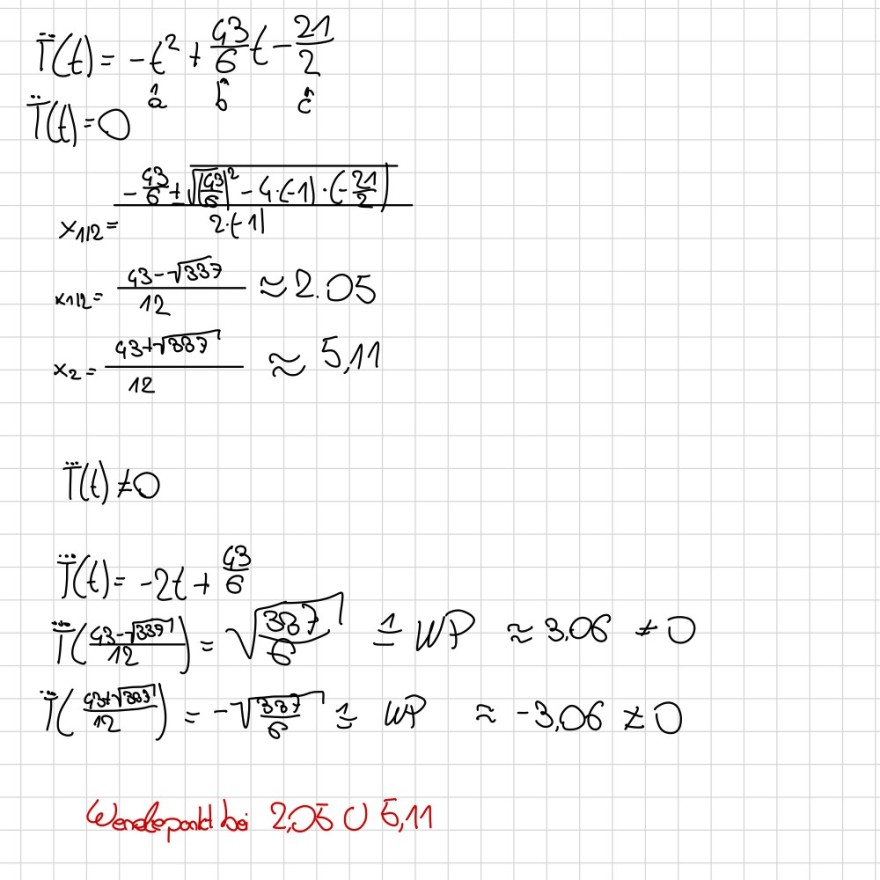 T̈(t) = -t² + 43/6 t - 21/2
â b̂ ĉ
T̈(t) = 0
x1/2 = (-43/6 ± √((43/6)² - 4·(-1)·(-21/2))) / 2·(-1)
x1/2 = (43-√337)/12 ≈ 2.05
x2 = (43+√337)/12 ≈ 5,11
T⃛(t) ≠ 0
T⃛(t) = -2t + 43/6
T⃛((43-√337)/12) = √(337/6) ≙ WP ≈ 3,06 ≠ 0
T⃛((43+√337)/12) = -√(337/6) ≙ WP ≈ -3,06 ≠ 0
Wendepunkt bei 2,05 U 5,11